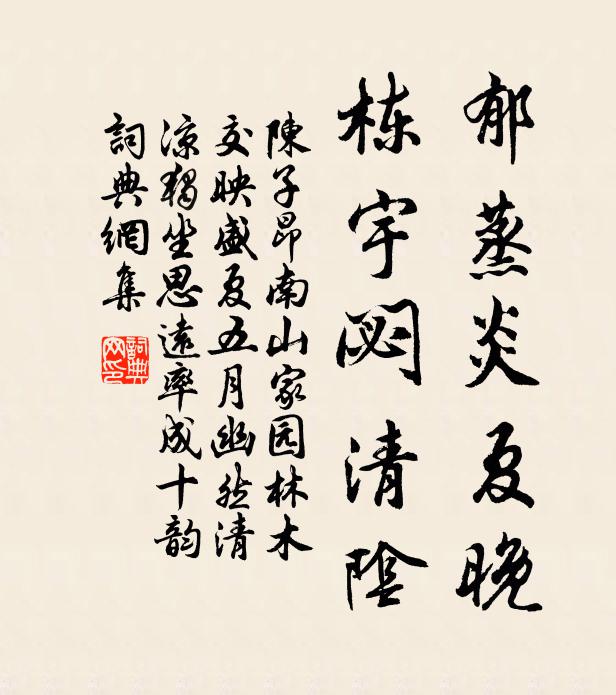 郁蒸炎夏晚
栋宇閟清陰
陳子昂南山家园林木
交映盛夏五月幽然清
涼獨坐思遠率成十韵
詞典網集
詞典網印